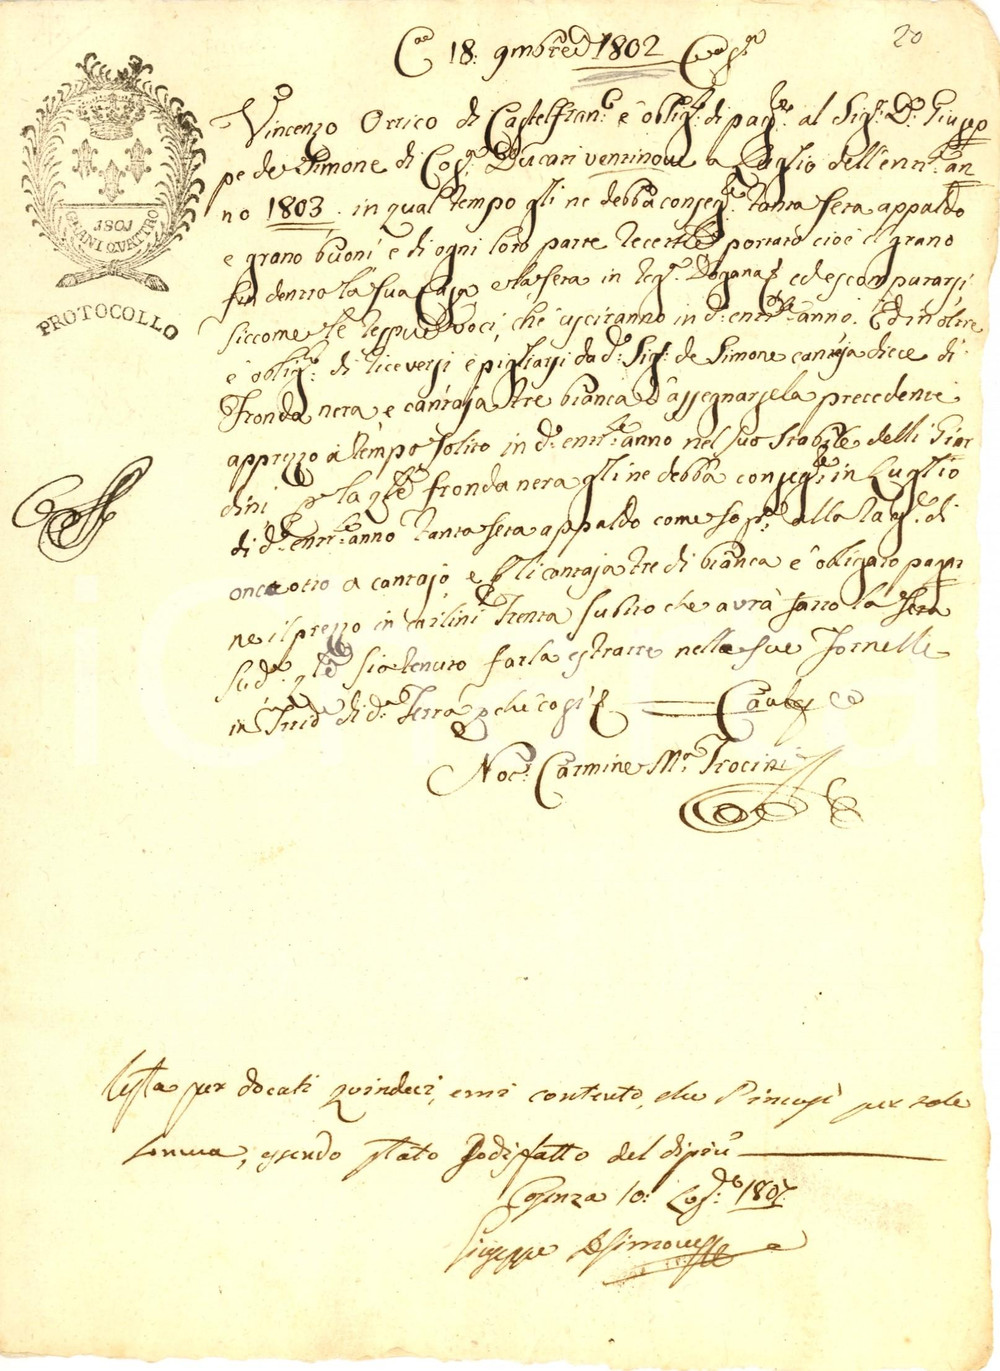 20
18: 9mbre 1802
1801
GRANI QUATTRO
PROTOCOLLO
Vincenzo Orrico di Castelfran:o è oblig:o di pag:re al Sig:r D: Giusep
pe de Simone di Cos:a Ducati ventinove a Luglio dell'entr:e an
no 1803. in qual tempo gli ne debba conseg:e tanta seta appaldo
e grano buoni e di ogni loro parte recettibili portato cioè il grano
fin dentro la sua Casa e la seta in reg:a Dogana ed escompurarsi
siccome le voci, che usciranno in d:o entr:e anno. Ed inoltre
è oblig:o di riceversi e pigliarsi da d:o Sig:r de Simone cantaja diece di
Fronda nera, e cantaja tre bianca d'assegnarsela precedente
apprezzo a tempo solito in d:o entr:e anno nel suo Stabile delli Giar
dini la q:le fronda nera gli ne debba conseg:e in Luglio
di d:o entr:e anno tanta seta appaldo come sop:a alla rag:e di
once otto a cantajo, e li cantaja tre di bianca è obligato pagar
ne il prezzo in carlini Trenta subito che avrà fatto la seta
sud:a q:le sia tenuto farla estrarre nelle sue Fornelle
in di d:a Terra e che così
Not:r Carmine M:a Trocini
Resta per docati quindeci, emi contento, che per tale
somma, essendo stato sodisfatto del dipiù
Cosenza 10: 1807
Giuseppe deSimone